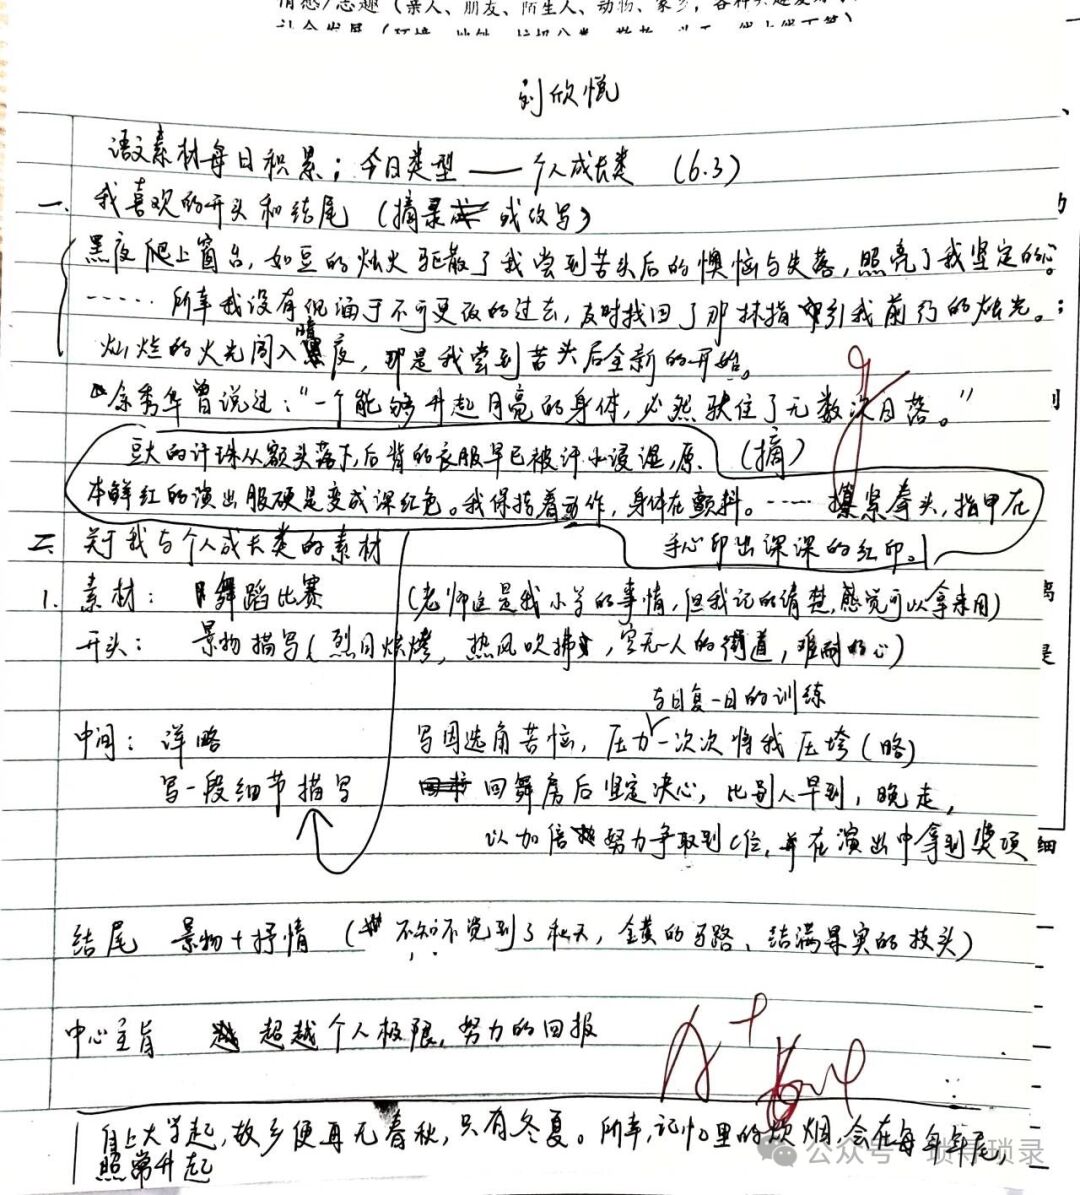 情感/志趣（亲人、朋友、陌生人、动物、家乡，各种
刘欣悦
语文素材每日积累；今日类型——个人成长类 （6.3）
一、我喜欢的开头和结尾（摘录或改写）
黑夜爬上窗台，如豆的烛火驱散了我尝到苦头后的懊恼与失落，照亮了我坚定的心。
……所幸我没有沉湎于不可更改的过去，及时找回了那抹指引我前行的烛光。
灿烂的火光闯入暗夜，那是我尝到苦头后全新的开始。
余秀华曾说过：“一个能够升起月亮的身体，必然驮住了无数次日落。”
（摘）
豆大的汗珠从额头落下，后背的衣服早已被汗水浸湿，原
本鲜红的演出服硬是变成深红色。我保持着动作，身体在颤抖。……攥紧拳头，指甲在
手心印出深深的红印。
二、关于我与个人成长类的素材
1. 素材：舞蹈比赛 （老师这是我小学的事情，但我记的清楚，感觉可以拿来用）
开头：景物描写（烈日烘烤，热风吹拂，空无一人的街道，难耐的心）
与日复一日的训练
中间：详略 写因选角苦恼，压力一次次将我压垮（略）
写一段细节描写 回舞房后坚定决心，比别人早到，晚走，
以加倍努力争取到C位，并在演出中拿到奖项
细
结尾 景物+抒情（不知不觉到了秋天，金黄的马路、结满果实的枝头）
中心主旨 超越个人极限，努力的回报
A+
自上大学起，故乡便再无春秋，只有冬夏。所幸，记忆里的炊烟，会在每年年尾，
照常升起
公众号 琐寻琐录